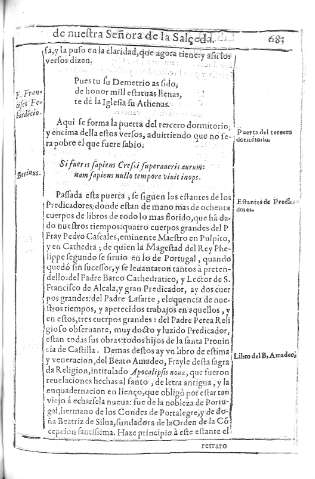 de nuestra Señora de la Salçeda.
681
sa, y la puso en la claridad, que agora tiene: y assi los
versos dizen.
Pues tu su Demetrio as sido,
de honor mill estatuas llenas,
te dè la Iglesia su Athenas.
Aqui se forma la puerta del tercero dormitorio,
y encima della estos versos, aduirtiendo que no se-
ra pobre el que fuere sabio.
Puerta del tercero
dormitorio.
Si fueris sapiens Cresii superaueris aurum:
nam sapiens nullo tempore viuit inops.
Passada esta puerta, se siguen los estantes de los
Predicadores, donde estan de mano mas de ochenta
cuerpos de libros de todo lo mas florido, que hã da-
do nuestros tiempos: quatro cuerpos grandes del P
Fray Pedro Cascales, eminente Maestro en Pulpito,
y en Cathedra, de quien la Magestad del Rey Phe-
lippe segundo se siruio en lo de Portugal, quando
quedó sin sucessor, y se leuantaron tantos à preten-
dello: del Padre Barco Cathedratico, y Lector de S.
Francisco de Alcala, y gran Predicador, ay dos cuer
pos grandes: del Padre Lasarte, eloquencia de nue-
stros tiempos, y apetecidos trabajos en aquellos, y
en estos, tres cuerpos grandes: del Padre Perea Reli
gioso obseruante, muy docto y luzido Predicador,
estan todas sus obras: todos hijos de la santa Prouin
cia de Castilla. Demas destos ay vn libro de estima
y veneracion, del Beato Amadeo, Frayle desta sagra
da Religion, intitulado Apocalipsis noua, que fueron
reuelaciones hechas al santo, de letra antigua, y la
enquadernacion en lienço, que obligó por estar tan
viejo à echarsela nueua: fue de la nobleza de Portu-
gal, hermano de los Condes de Portalegre, y de do-
ña Beatriz de Silua, fundadora de la Orden de la Cõ
cepcion santissima. Haze principio à este estante el
retrato
Estantes de Predica
Libro del B. Amadeo,